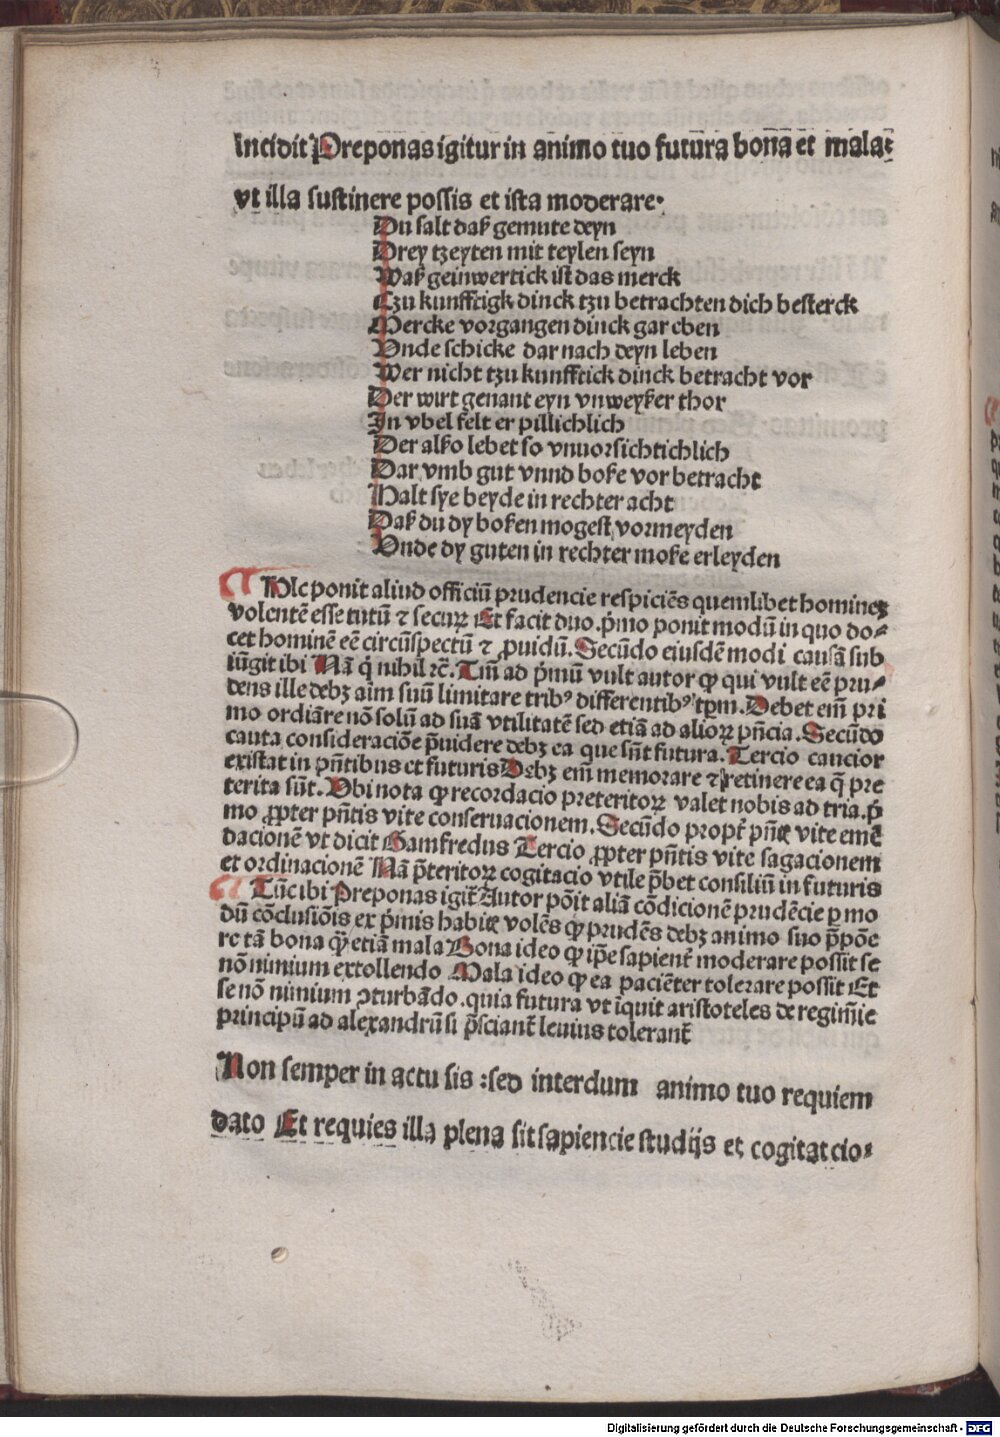 incidit Preponas igitur in animo tuo futura bona et malaꝛ
vt illa sustinere possis et ista moderare.
Du salt daß gemute deyn
Drey tzeyten mit teylen seyn
Waß geinwertick ist das merck
Czu kunfftigk dinck tzu betrachten dich besterck
Mercke vorgangen dinck gar eben
Vnde schicke dar nach deyn leben
Wer nicht tzu kunfftick dinck betracht vor
Der wirt genant eyn vnweyßer thor
In vbel felt er pillichlich
Der alßo lebet so vnuorsichtichlich
Dar vmb gut vnnd boße vor betracht
Halt sye beyde in rechter acht
Daß du dy boßen mogest vormeyden
Vnde dy guten in rechter moße erleyden
¶ Hic ponit aliud officiū prudencie respiciēs quemlibet hominez
volentē esse tutū ⁊ secuꝝ Et facit duo. p̄mo ponit modū in quo do⸗
cet hominē eē circūspectū ⁊ ꝓuidū. Secūdo eiusdē modi causā sub
iūgit ibi Nā q̇ nihil rc̄. Tm̄ ad p̄mū vult autor ꝙ qui vult eē pru⸗
dens ille debꝫ aīm suū limitare tribꝰ differentibꝰ tꝑm. Debet em̄ pri
mo ordiāre nō solū ad suā vtilitatē sed etiā ad alioꝝ pn̄cia. Secūdo
cauta consideraciōe p̄uidere debꝫ ea que sūt futura. Tercio caucior
existat in pn̄tibus et futuris Debꝫ em̄ memorare ⁊ retinere ea q̄ pre
terita sūt. Vbi nota ꝙ recordacio preteritoꝝ valet nobis ad tria. p̄
mo ꝓpter pn̄tis vite conseruacionem. Secūdo propt̄ pn̄tꝭ vite emē
dacionē vt dicit Gamfredus Tercio ꝓpter pn̄tis vite sagacionem
et ordinacionē Nā p̄teritoꝝ cogitacio vtile p̄bet consiliū in futuris
¶ Tūc ibi Preponas igit̄ Autor pōit aliā cōdicionē prudēcie ꝑ mo
dū cōclusiōis ex p̄mis habitꝭ volēs ꝙ prudēs debꝫ animo suo p̄pōe
re tā bona q̄ꝫ etiā mala Bona ideo ꝙ ip̄e sapient̄ moderare possit se
nō nimium extollendo Mala ideo ꝙ ea paciēter tolerare possit Et
se nō nimium ꝯturbādo. quia futura vt īquit aristoteles de regim̄ie
principū ad alexandrū si p̄sciant̄ leuius tolerant̄
Non semper in actu sis : sed interdum animo tuo requiem
dato Et requies illa plena sit sapiencie studijs et cogitatcio⸗
Digitalisierung gefördert durch die Deutsche Forschungsgemeinschaft - DFG